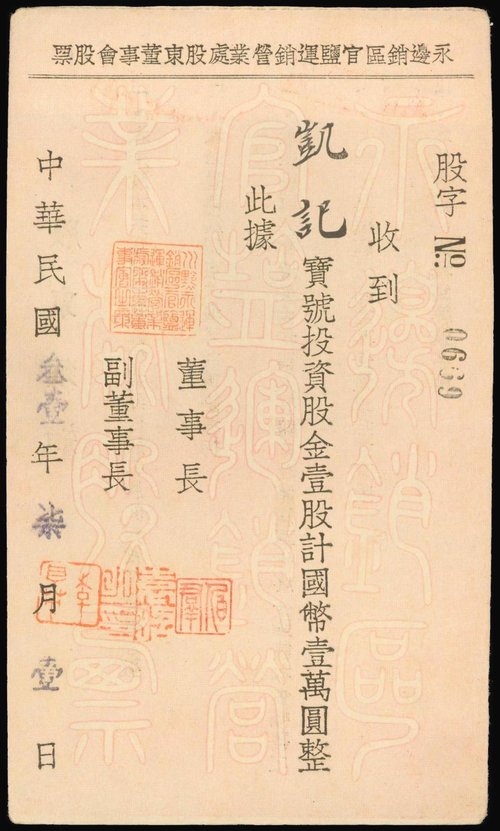 永邊銷區官鹽運銷營業處股東董事會股票
股字 №: 0639
收到
凱記寶號投資股金壹股計國幣壹萬圓整
此據
董事長
副董事長
中華民國叁壹年柒月壹日
永邊銷區
官鹽運銷營